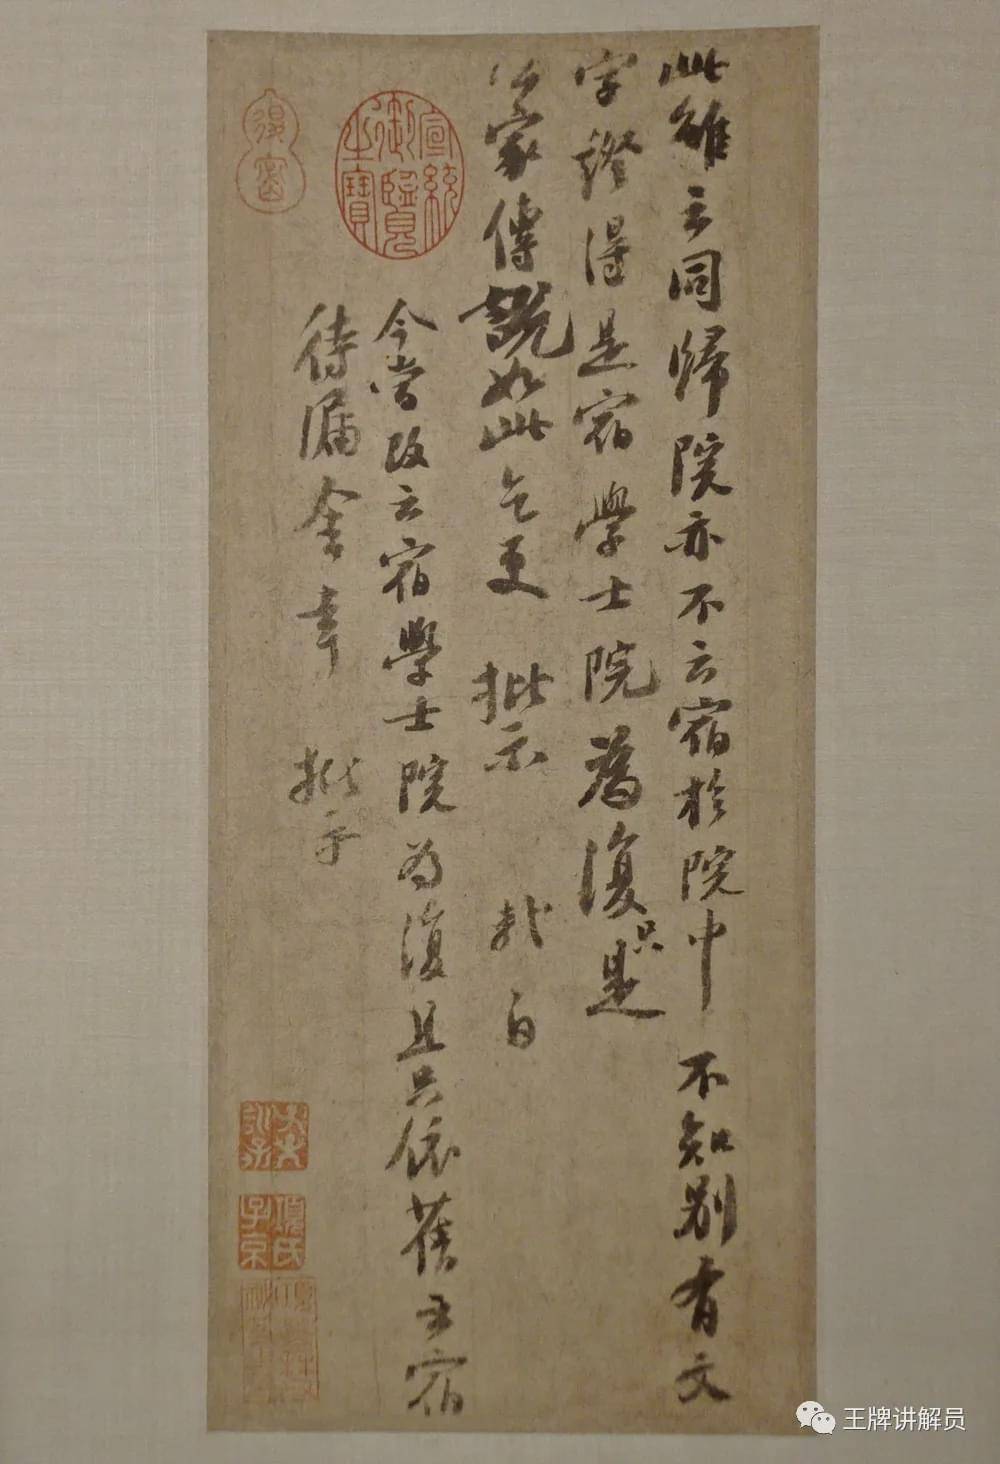 此雖云同歸院亦不云宿於院中 不知別有文
字證得是宿學士院為復只是
公家傳說如此乞更 批示 軾白
今嘗改云宿學士院為復且只依舊云宿
待漏舍幸 批示
宣統
御覽
之寶
項氏
子京
王牌讲解员